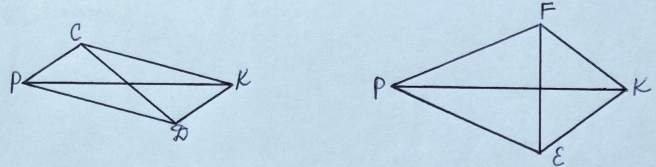 C
P K
D
F
P K
E